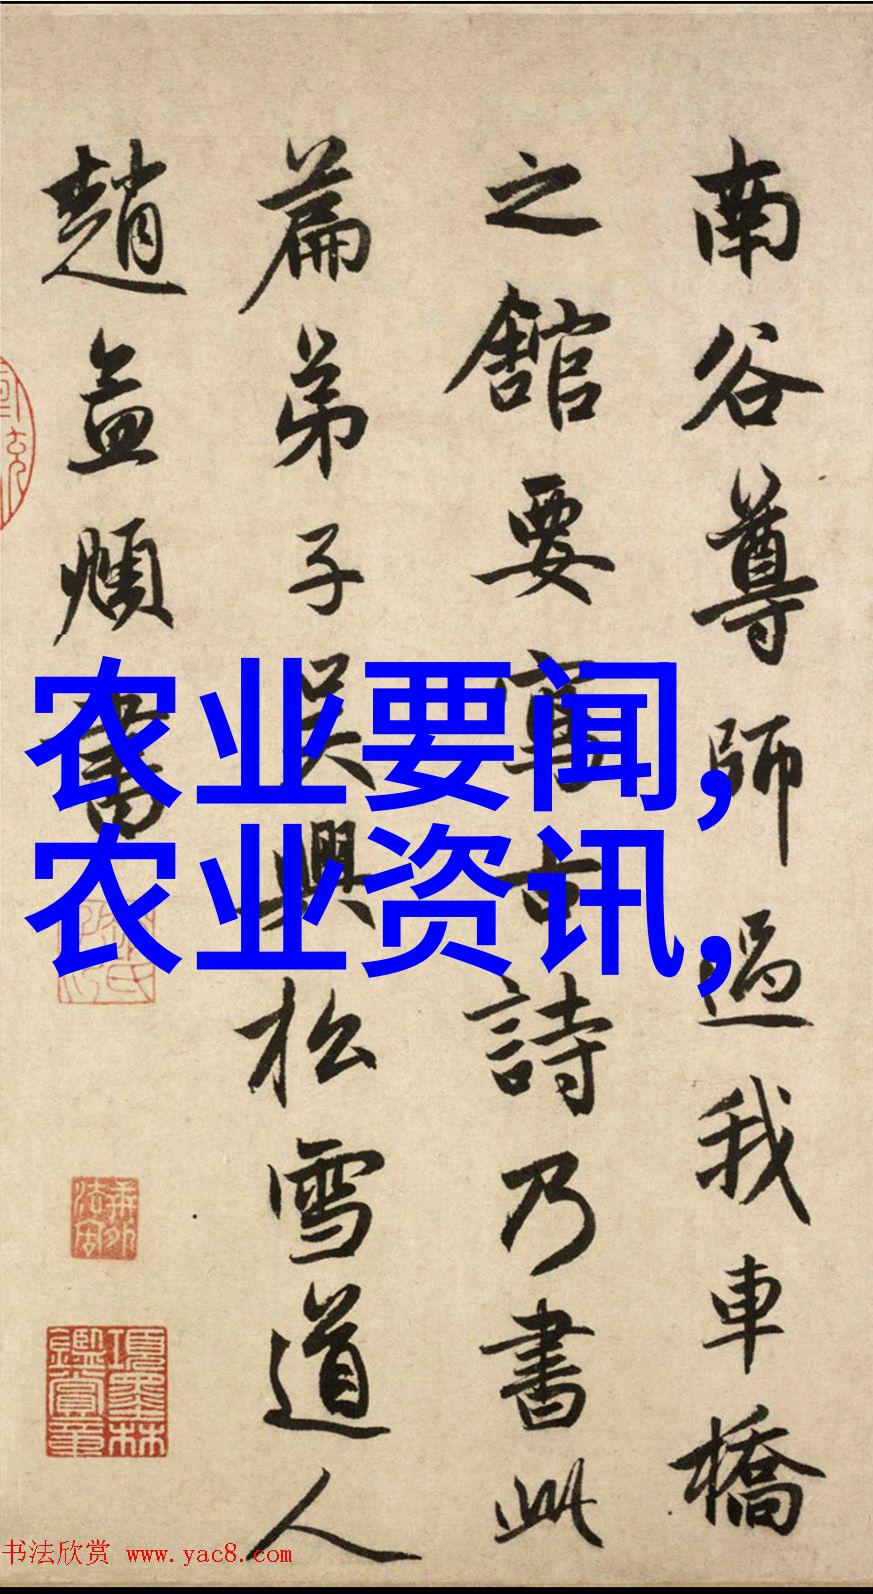 南谷尊師過我車橋
之館要寫古詩乃書此
篇弟子吳興松雪道人
趙孟頫書
农业要闻,
农业资讯,
項墨林鑑賞章
书法欣赏 www.yac8.com